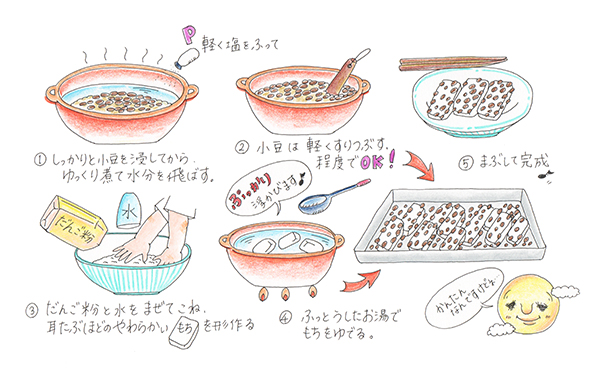 P 軽く塩をふって
① しっかりと小豆を浸してから
ゆっくり煮て水分を飛ばす。
② 小豆は軽くすりつぶす。
程度でOK!
⑤ まぶして完成
だんご粉
水
③ だんご粉と水をまぜてこね、
耳たぶほどのやわらかい もち を形作る
ぷっかり
浮かびます
④ ふっとうしたお湯で
もちをゆでる。
かんたん
なんですけどね